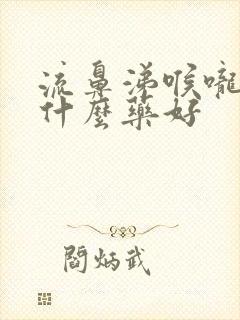 流鼻涕喉嚨
什麼藥好
閻炳武